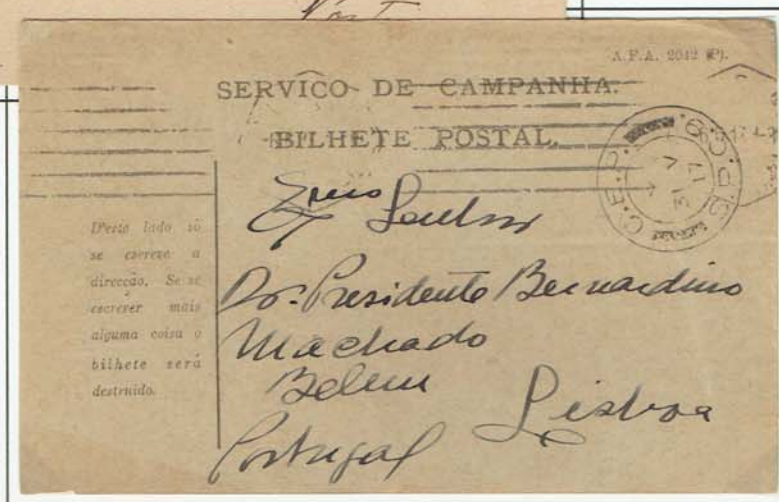 A.F.A. 2042 (P).
SERVIÇO DE CAMPANHA.
BILHETE POSTAL.
S.P.C. 6.
31 V 17
C.E.P.
D'este lado só
se escreve a
direcção. Se se
escrever mais
alguma coisa o
bilhete será
destruido.
Exmo Senhor
Dr. Presidente Bernardino
Machado
Belem
Lisboa
Portugal